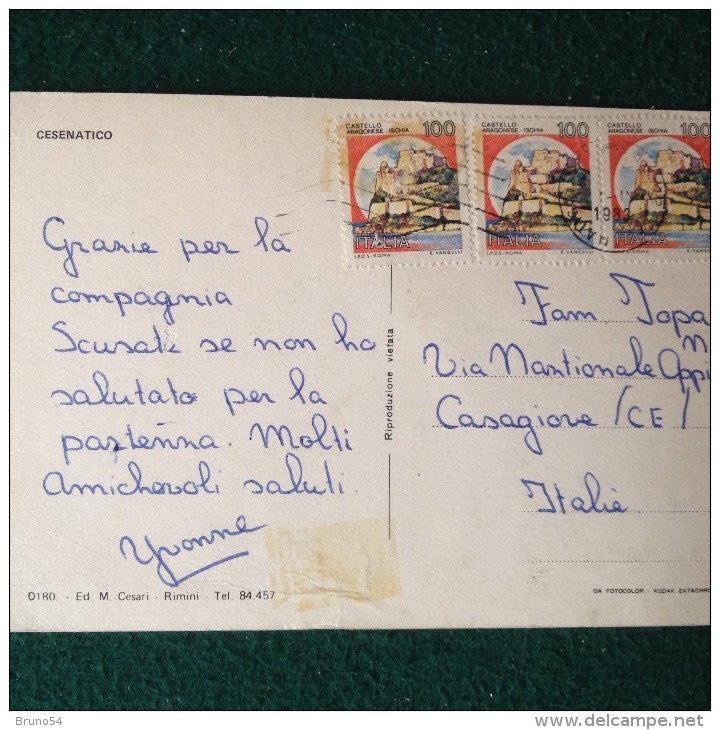 CESENATICO
CASTELLO
ARAGONESE - ISCHIA
100
ITALIA
I.P.Z.S.-ROMA E. VANGELLI
CASTELLO
ARAGONESE - ISCHIA
100
ITALIA
I.P.Z.S.-ROMA E. VANGELLI
CASTELLO
ARAGONESE - ISCHIA
100
ITALIA
I.P.Z.S.-ROMA E. VANGELLI
Grazie per la
compagnia
Scusate se non ho
salutato per la
partenna. Molti
Amichevoli saluti.
Yvonne
Riproduzione vietata
Fam Topa
Via Nantionale Appi
Casagiove (CE)
Italië
0180. - Ed. M. Cesari - Rimini - Tel. 84.457
DA FOTOCOLOR - KODAK EKTACHRO
Bruno54
delcampe.net